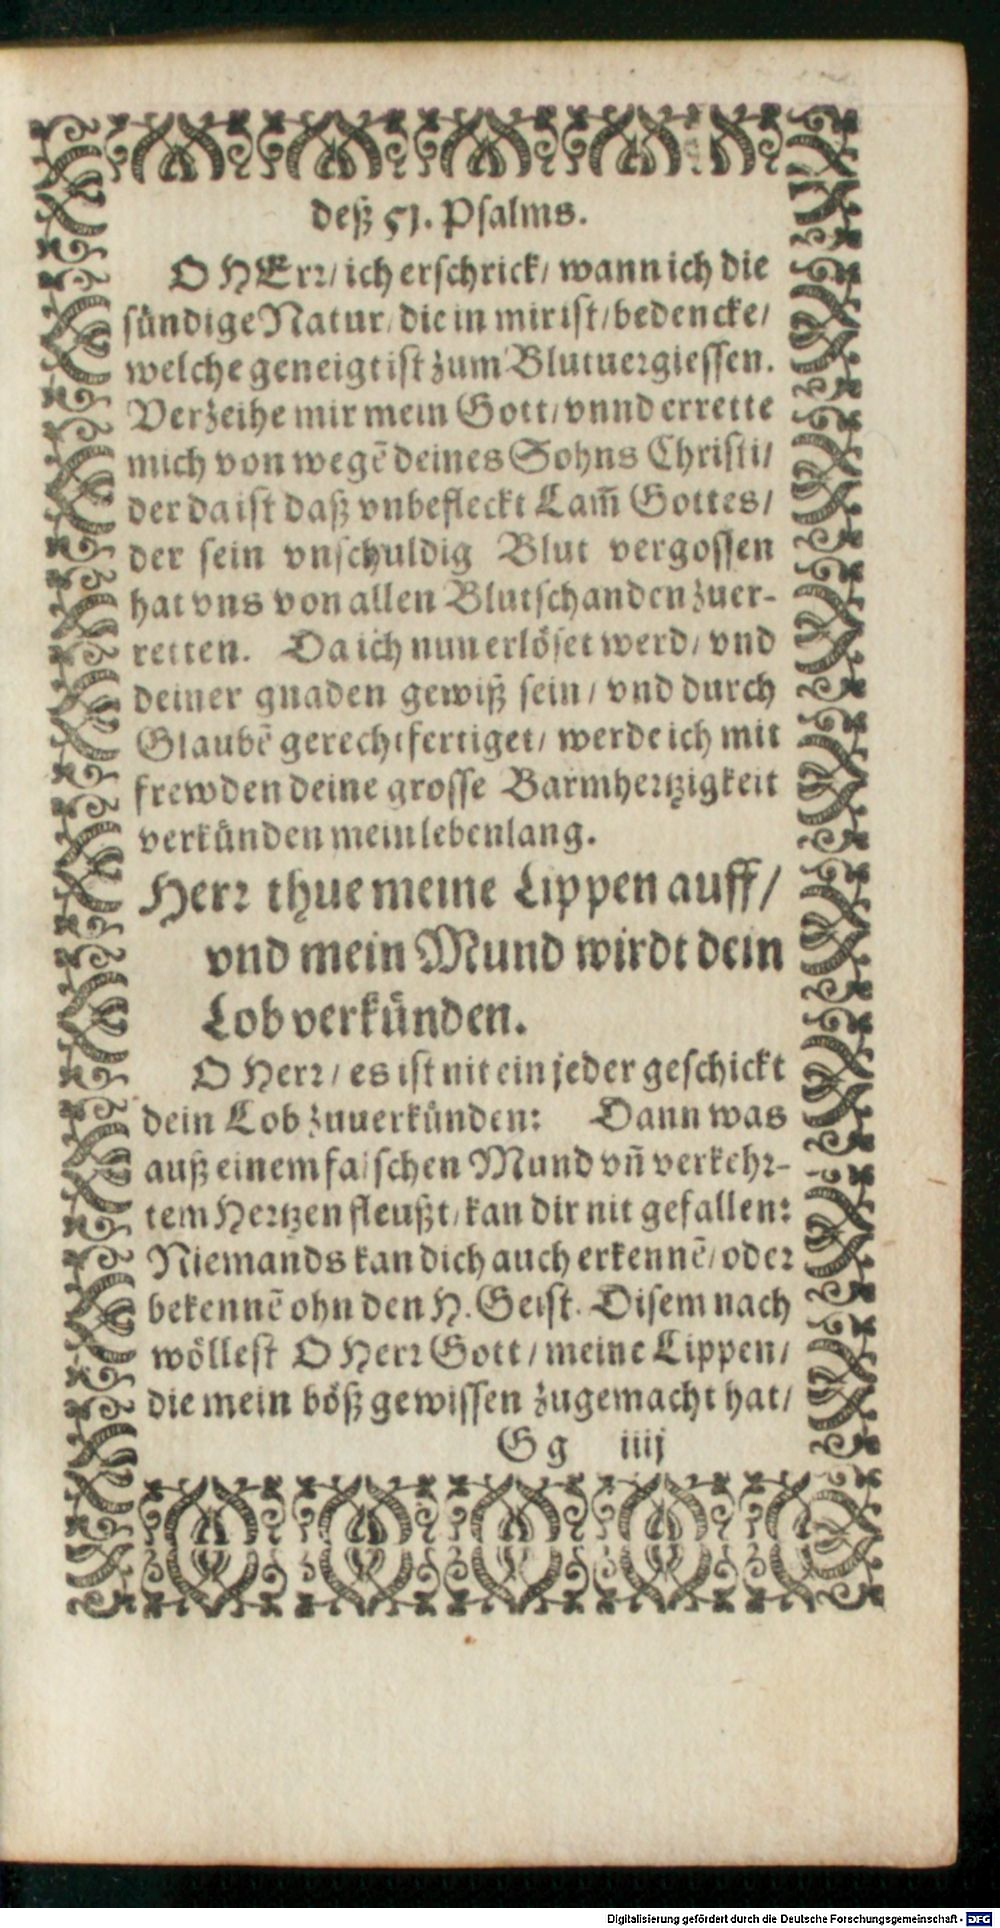 deß 51. Psalms.
O HErr/ ich erschrick/ wann ich die
sündige Natur/ die in mir ist/ bedencke/
welche geneigt ist zum Blutuergiessen.
Verzeihe mir mein Gott/ vnnd errette
mich von wegẽ deines Sohns Christi/
der da ist daß vnbefleckt Lam̃ Gottes/
der sein vnschuldig Blut vergossen
hat vns von allen Blutschanden zuer-
retten. Da ich nun erlöset werd/ vnd
deiner gnaden gewiß sein/ vnd durch
Glaubẽ gerechtfertiget/ werde ich mit
frewden deine grosse Barmhertzigkeit
verkünden mein lebenlang.
Herr thue meine Lippen auff/
vnd mein Mund wirdt dein
Lob verkünden.
O Herr/ es ist nit ein jeder geschickt
dein Lob zuuerkünden: Dann was
auß einem falschen Mund vñ verkehr-
tem Hertzen fleußt/ kan dir nit gefallen:
Niemands kan dich auch erkennẽ/ oder
bekennẽ ohn den H. Geist. Disem nach
wöllest O Herr Gott/ meine Lippen/
die mein böß gewissen zugemacht hat/
Gg iiij
Digitalisierung gefördert durch die Deutsche Forschungsgemeinschaft - DFG